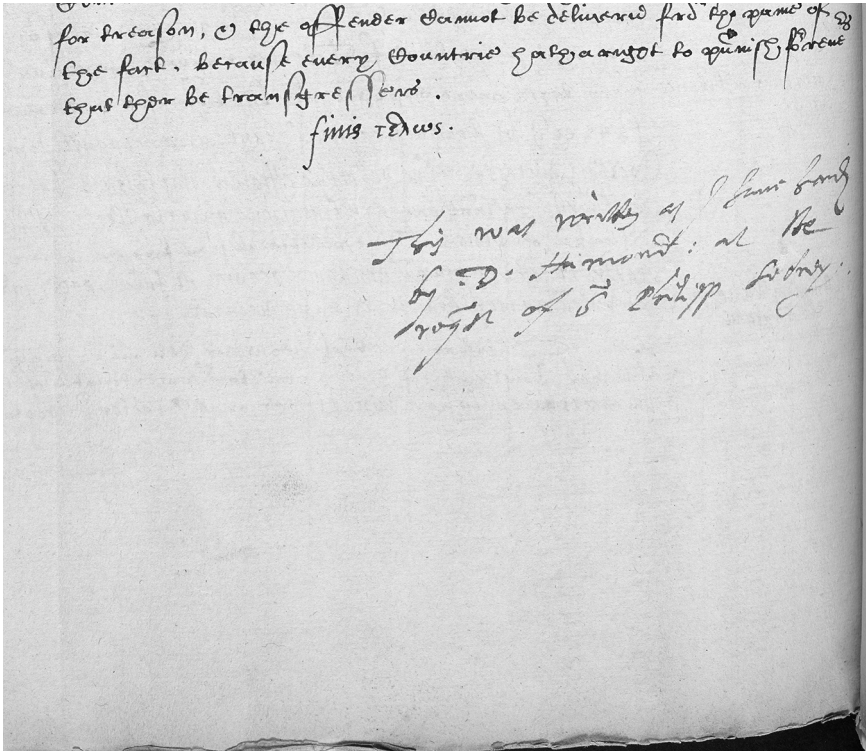 for treason, & the offender cannot be deliuerid frō the paine of
the fact. because euery Countrie hath a right to punish forene
that ther be transgressers.
finis τέλως.
This was written as I haue hard
by D. Hamond: at the
reqst of Sr Philipp Sedney.